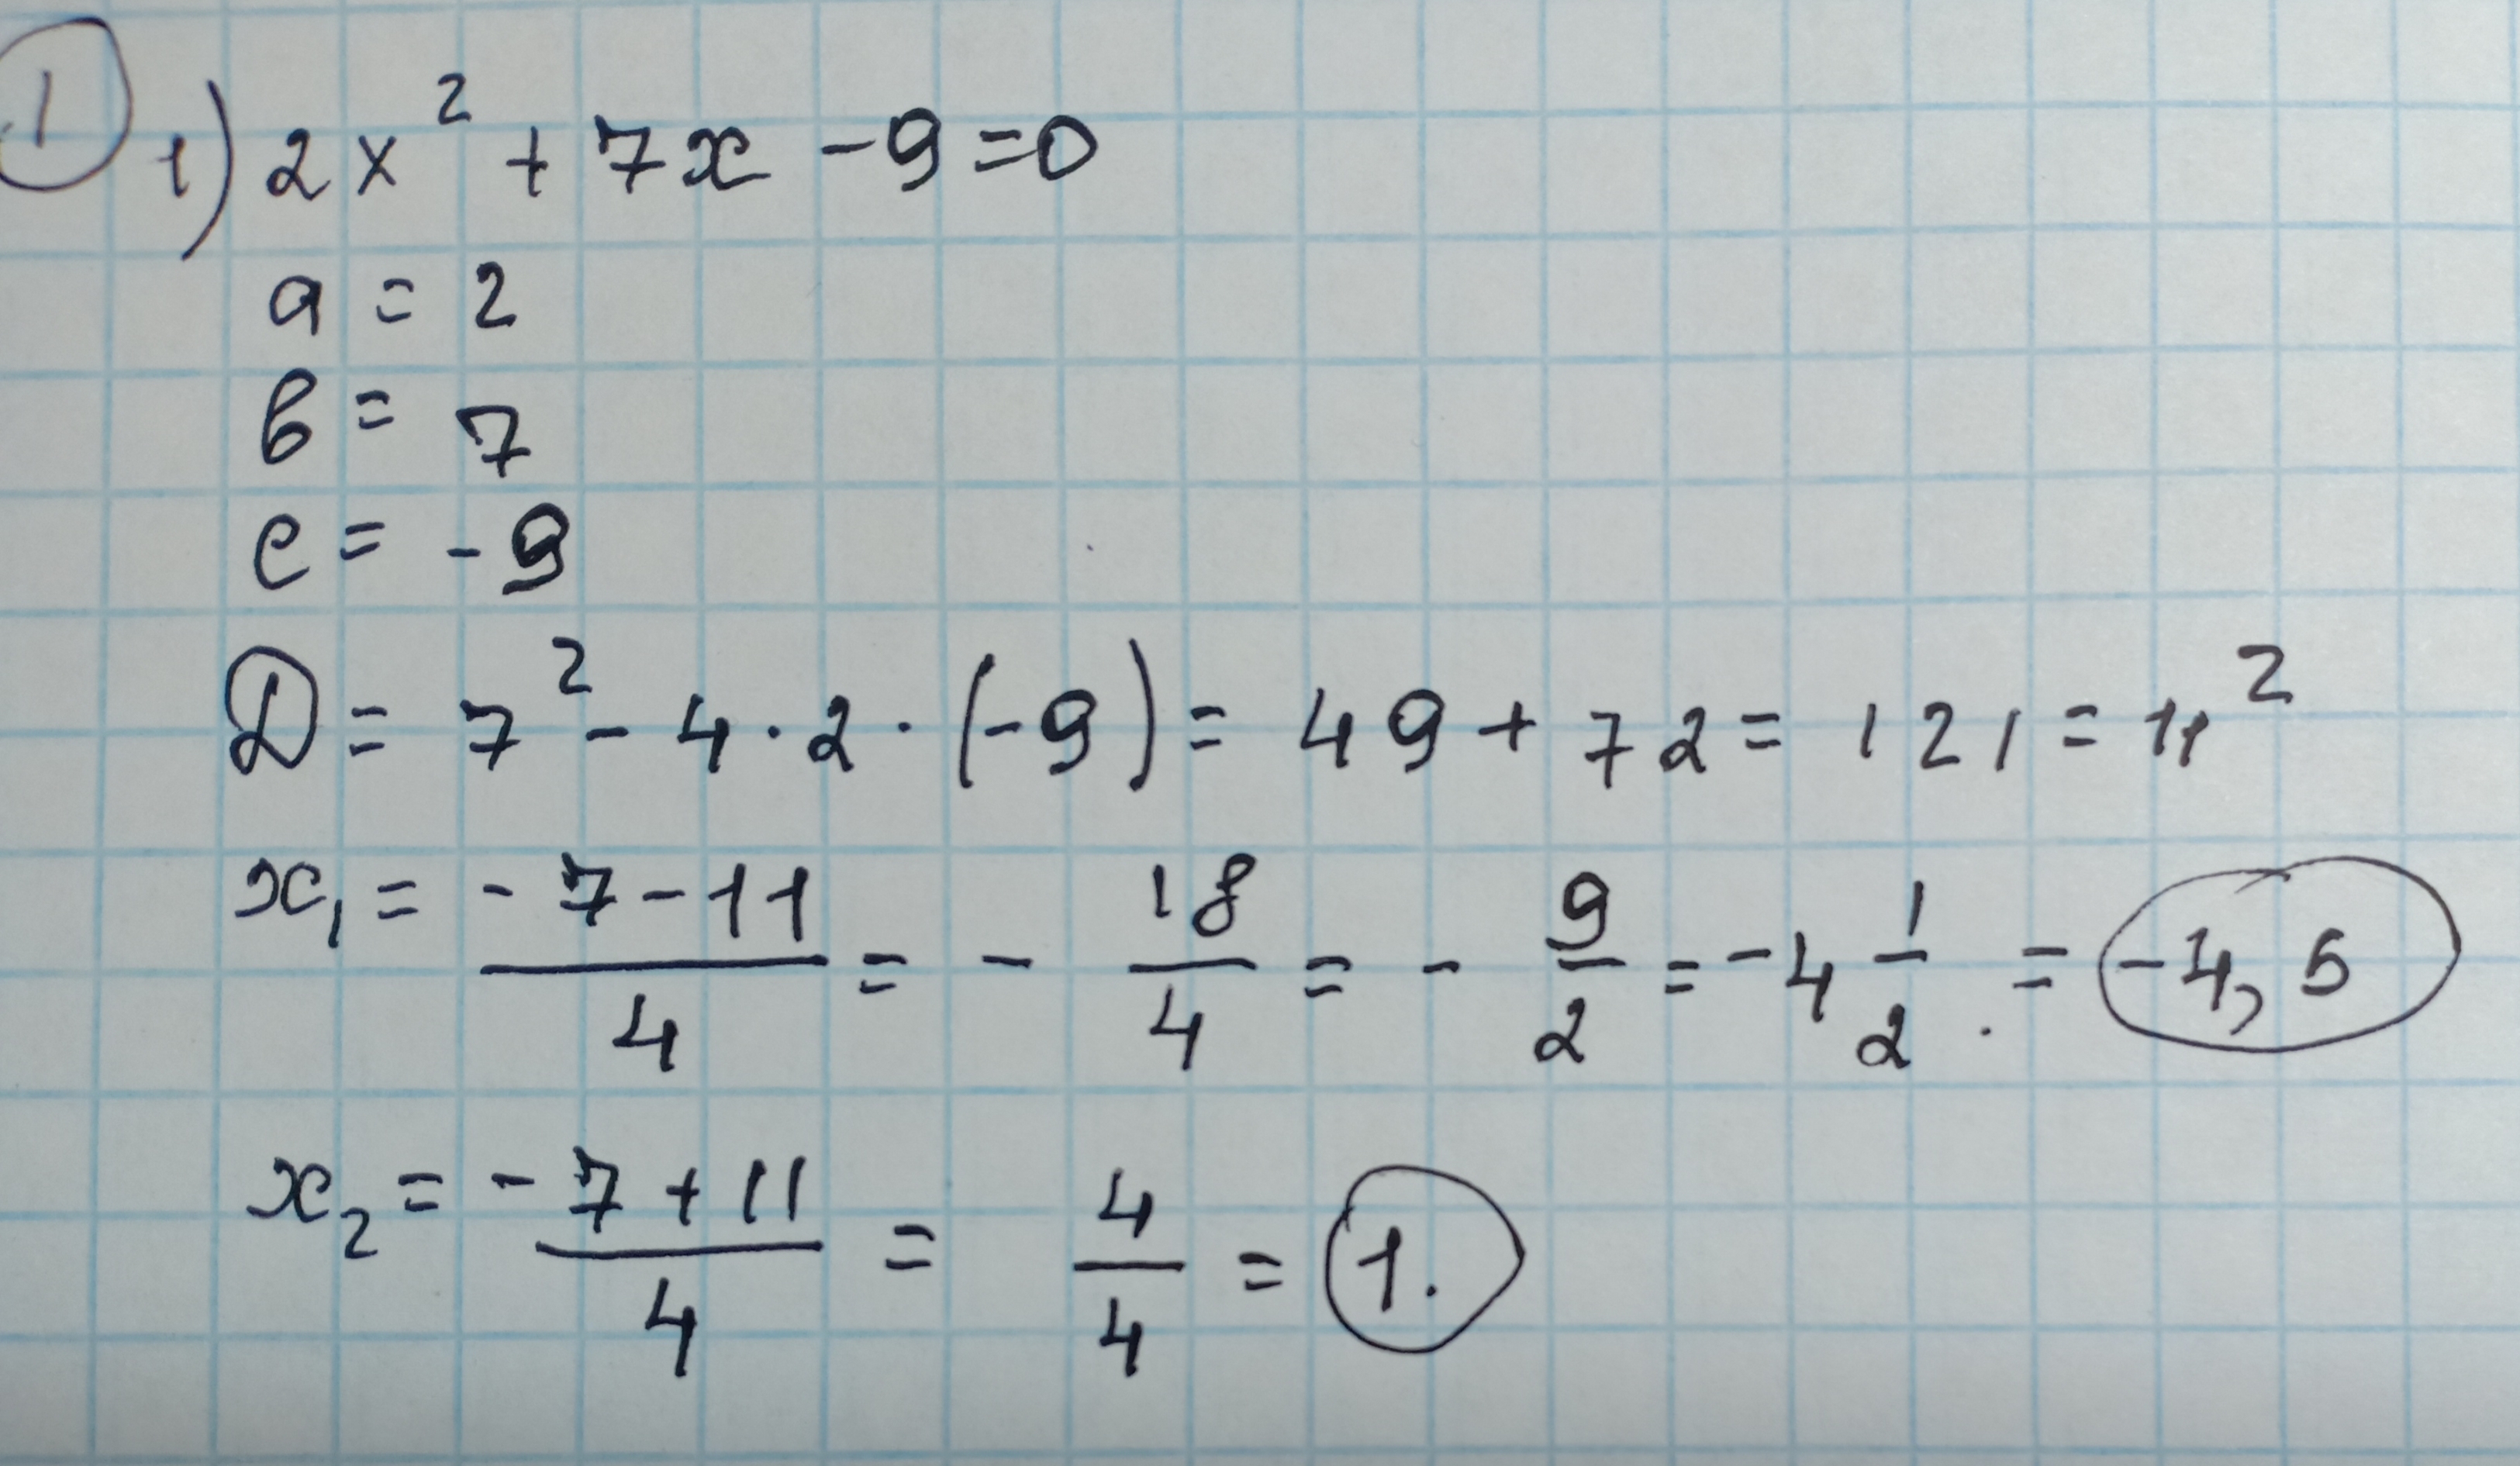 ① 1) 2x² + 7x - 9 = 0
a = 2
b = 7
c = -9
D = 7² - 4 · 2 · (-9) = 49 + 72 = 121 = 11²
x₁ = (-7-11)/4 = - 18/4 = - 9/2 = -4 1/2 . = -4,5
x₂ = (-7+11)/4 = 4/4 = 1.